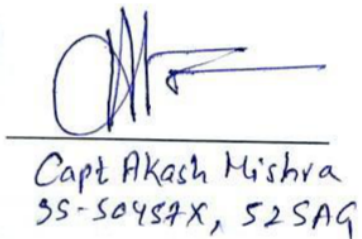 Capt Akash Mishra
SS-50457X, 52SAG